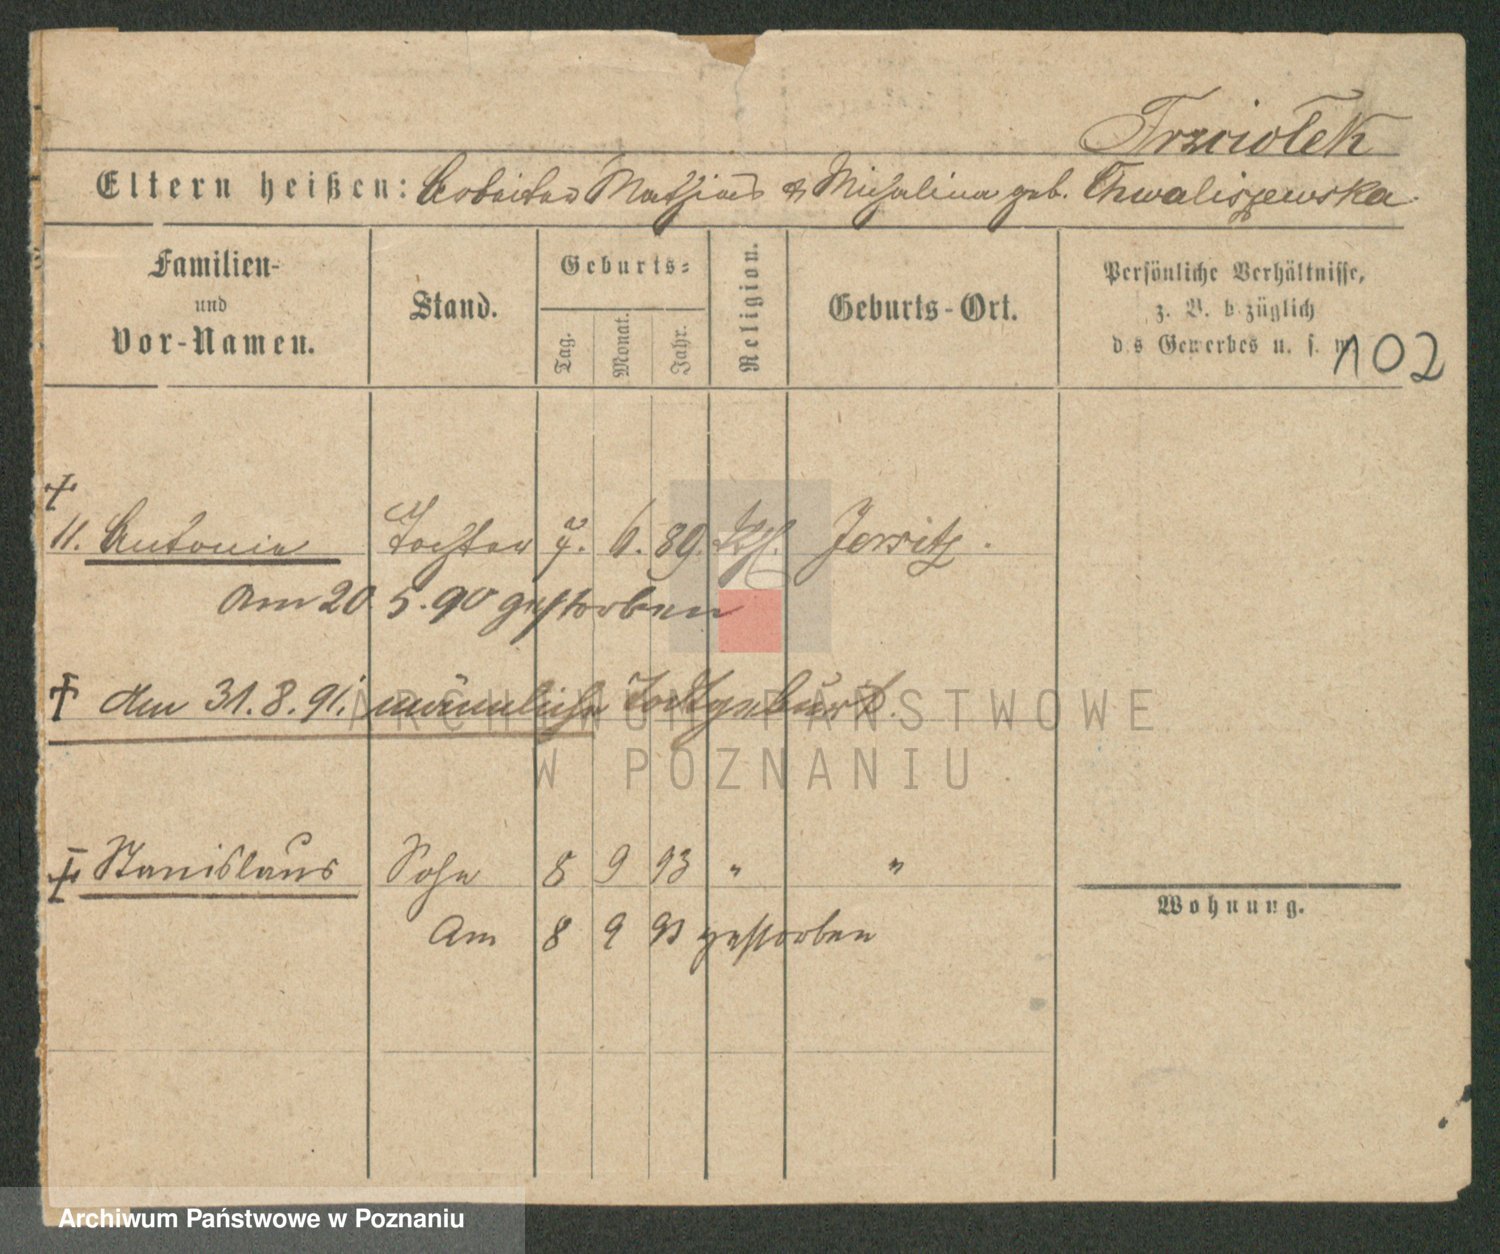 Trzciołek
Eltern heißen: Arbeiter Mathias & Michalina geb. Chwaliszewska
Familien-
und
Vor-Namen.
Stand.
Geburts-
Tag.
Monat.
Jahr.
Religion.
Geburts-Ort.
Persönliche Verhältnisse,
z. B. bezüglich
des Gewerbes u. s. w.
102
†
11. Antonie Tochter 7. 6. 89. Kth. Jersitz.
Am 20. 5. 90 gestorben
† Am 31. 8. 91. männliche Todtgeburt.
† Stanislaus Sohn 8 9 93 " "
Am 8 9 93 gestorben
Wohnung.
ARCHIWUM PAŃSTWOWE
W POZNANIU
Archiwum Państwowe w Poznaniu